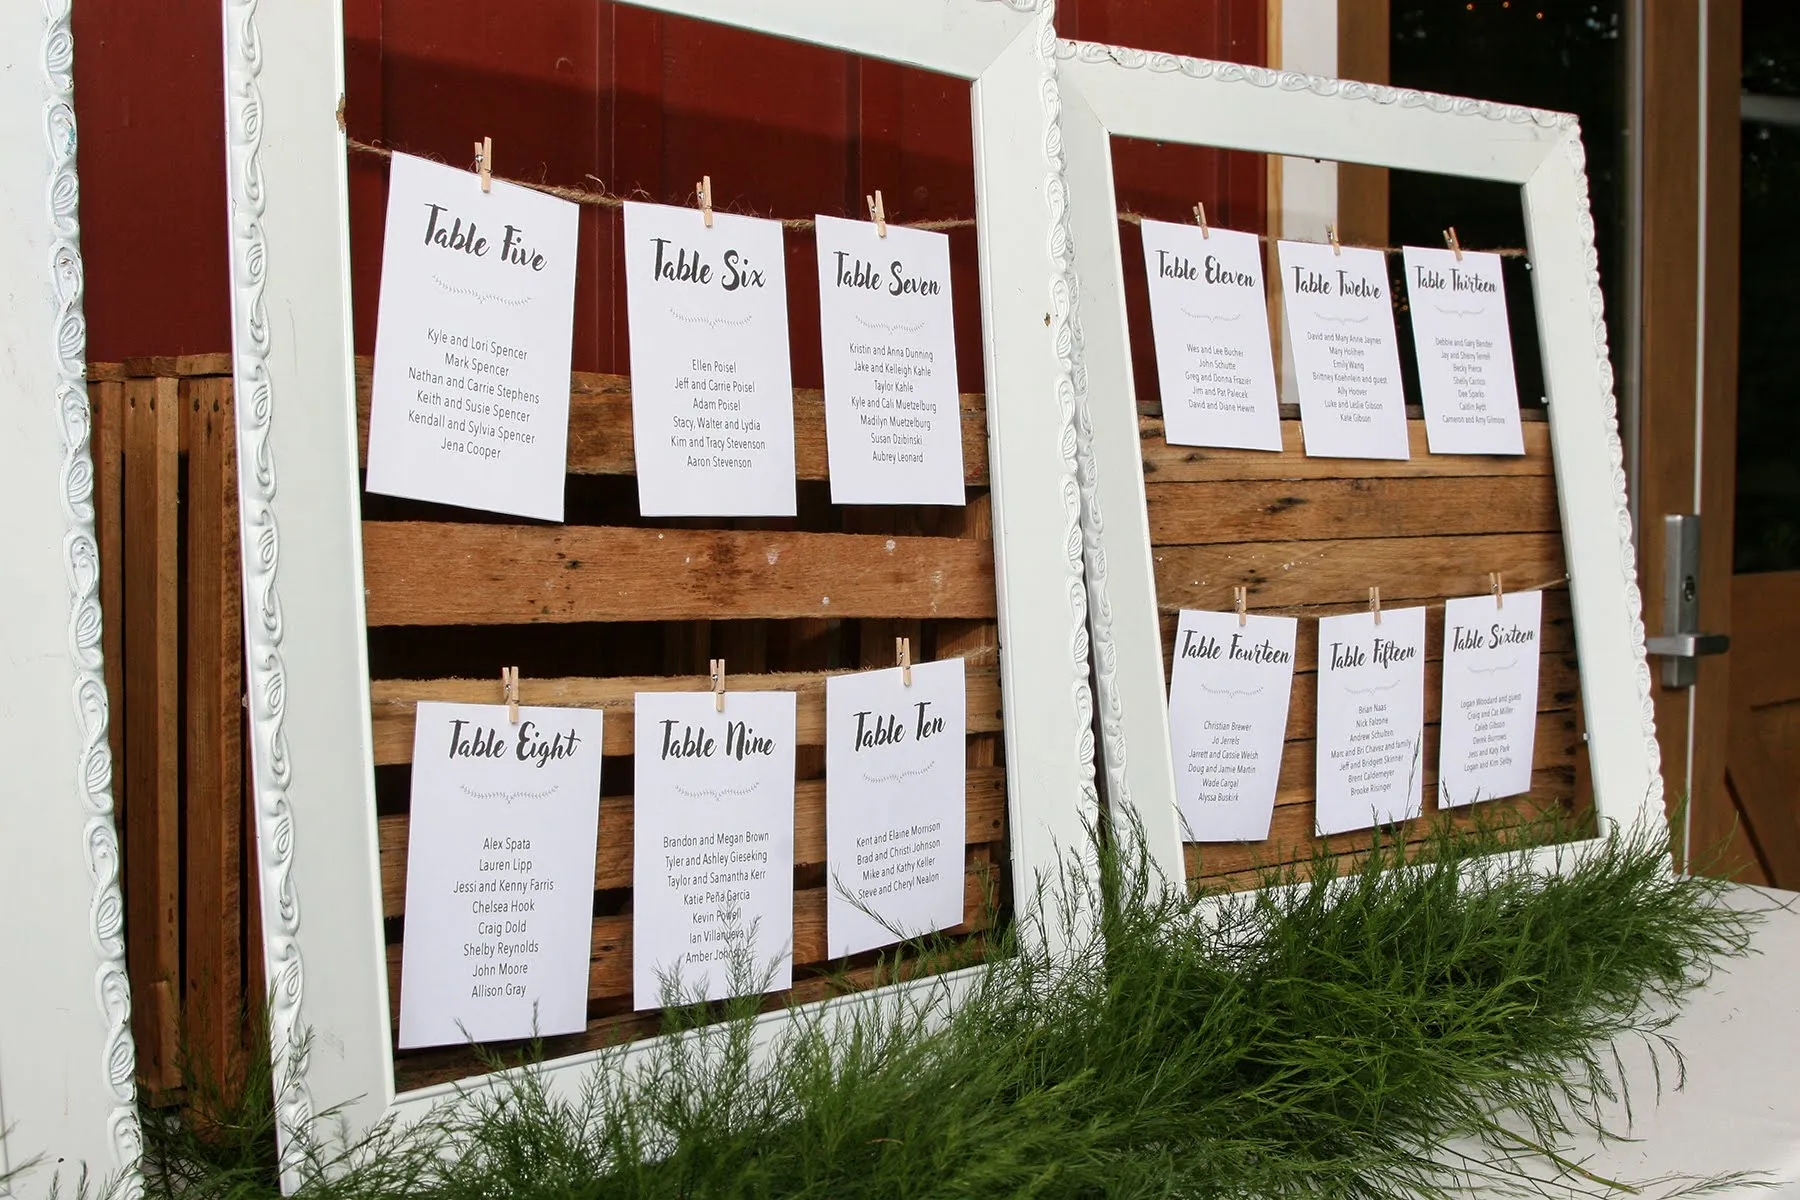 Table Five
Kyle and Lori Spencer
Mark Spencer
Nathan and Carrie Stephens
Keith and Susie Spencer
Kendall and Sylvia Spencer
Jena Cooper
Table Six
Ellen Poisel
Jeff and Carrie Poisel
Adam Poisel
Stacy, Walter and Lydia
Kim and Tracy Stevenson
Aaron Stevenson
Table Seven
Kristin and Anna Dunning
Jake and Kelleigh Kahle
Taylor Kahle
Kyle and Cali Muetzelburg
Madilyn Muetzelburg
Susan Dzibinski
Aubrey Leonard
Table Eight
Alex Spata
Lauren Lipp
Jessi and Kenny Farris
Chelsea Hook
Craig Dold
Shelby Reynolds
John Moore
Allison Gray
Table Nine
Brandon and Megan Brown
Tyler and Ashley Gieseking
Taylor and Samantha Kerr
Katie Peña Garcia
Kevin Powell
Ian Villanueva
Amber
Table Ten
Kent and Elaine Morrison
Brad and Christi Johnson
Mike and Kathy Keller
Steve and Cheryl Nealon
Table Eleven
Wes and Lee Bucher
John Schutte
Greg and Donna Frazier
Jim and Pat Palecek
David and Diane Hewitt
Table Twelve
David and Mary Anne Jaynes
Mary Holihen
Emily Wang
Brittney Koehnlein and guest
Ally Hoover
Luke and Leslie Gibson
Kate Gibson
Table Thirteen
Debbie and Gary Bender
Jay and Sherry Terrell
Becky Pierce
Shelly Carrico
Dee Sparks
Caitlin Aydt
Cameron and Amy Gilmore
Table Fourteen
Christian Brewer
Jo Jerrels
Jarrett and Cassie Welsh
Doug and Jamie Martin
Wade Cargal
Alyssa Buskirk
Table Fifteen
Brian Naas
Nick Falzone
Andrew Schulten
Marc and Bri Chávez and family
Jeff and Bridgett Skinner
Brent Caldemeyer
Brooke Risinger
Table Sixteen
Logan Woodard and guest
Craig and Cat Miller
Caleb Gibson
Derek Burrows
Jess and Katy Park
Logan and Kim Selby